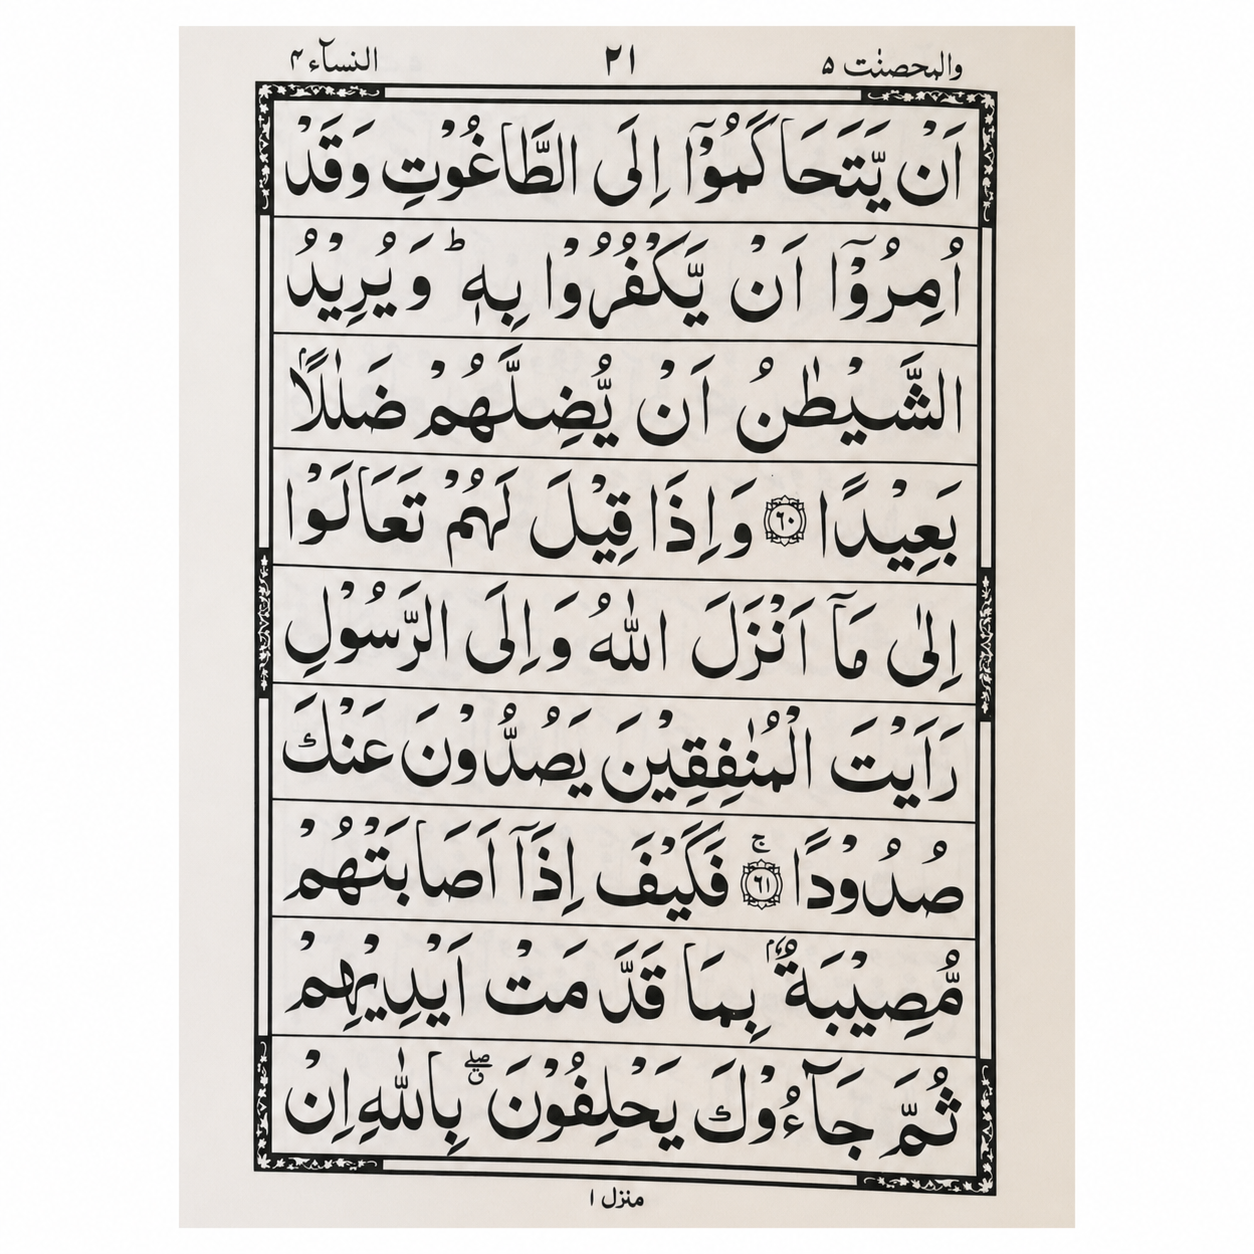 والمحصنٰت ۵
۲۱
النسآء ۴
اَنْ يَّتَحَاكَمُوْٓا اِلَى الطَّاغُوْتِ وَقَدْ
اُمِرُوْٓا اَنْ يَّكْفُرُوْا بِهٖ ؕ وَيُرِيْدُ
الشَّيْطٰنُ اَنْ يُّضِلَّهُمْ ضَلٰلًاۢ
بَعِيْدًا ۝۶۰ وَاِذَا قِيْلَ لَهُمْ تَعَالَوْا
اِلٰى مَآ اَنْزَلَ اللّٰهُ وَاِلَى الرَّسُوْلِ
رَاَيْتَ الْمُنٰفِقِيْنَ يَصُدُّوْنَ عَنْكَ
صُدُوْدًا ۝۶۱ ۚ فَكَيْفَ اِذَآ اَصَابَتْهُمْ
مُّصِيْبَةٌۢ بِمَا قَدَّمَتْ اَيْدِيْهِمْ
ثُمَّ جَآءُوْكَ يَحْلِفُوْنَ ۖ ق بِاللّٰهِ اِنْ
منزل ۱